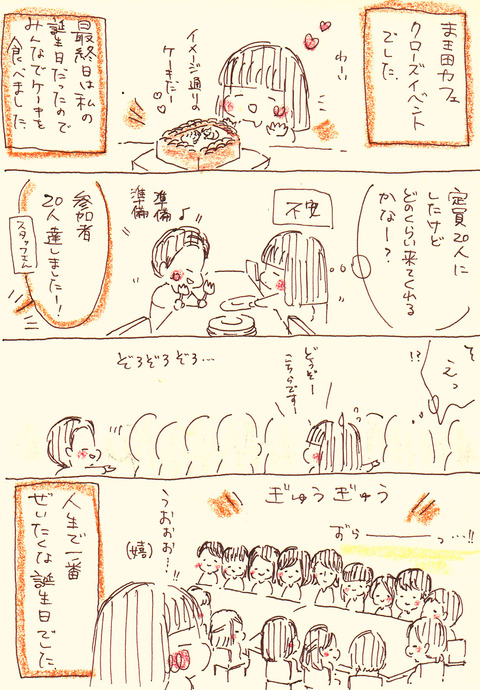 まま田カフェ
クローズイベント
でした。
わーい
イメージ通りの
ケーキだー
最終日は私の
誕生日だったので
みんなでケーキを
食べました
定員20人に
したけど
どのくらい来てくれる
かなー?
不安
準備
準備♪
参加者
20人達しましたー!
スタッフさん
そ
えっ
!?
どうぞー
こちらですー
ぞろぞろぞろ…
ぎゅうぎゅう
ずらーーーっ…!!
うおおお…!!
(嬉)
人生で一番
ぜいたくな誕生日でした